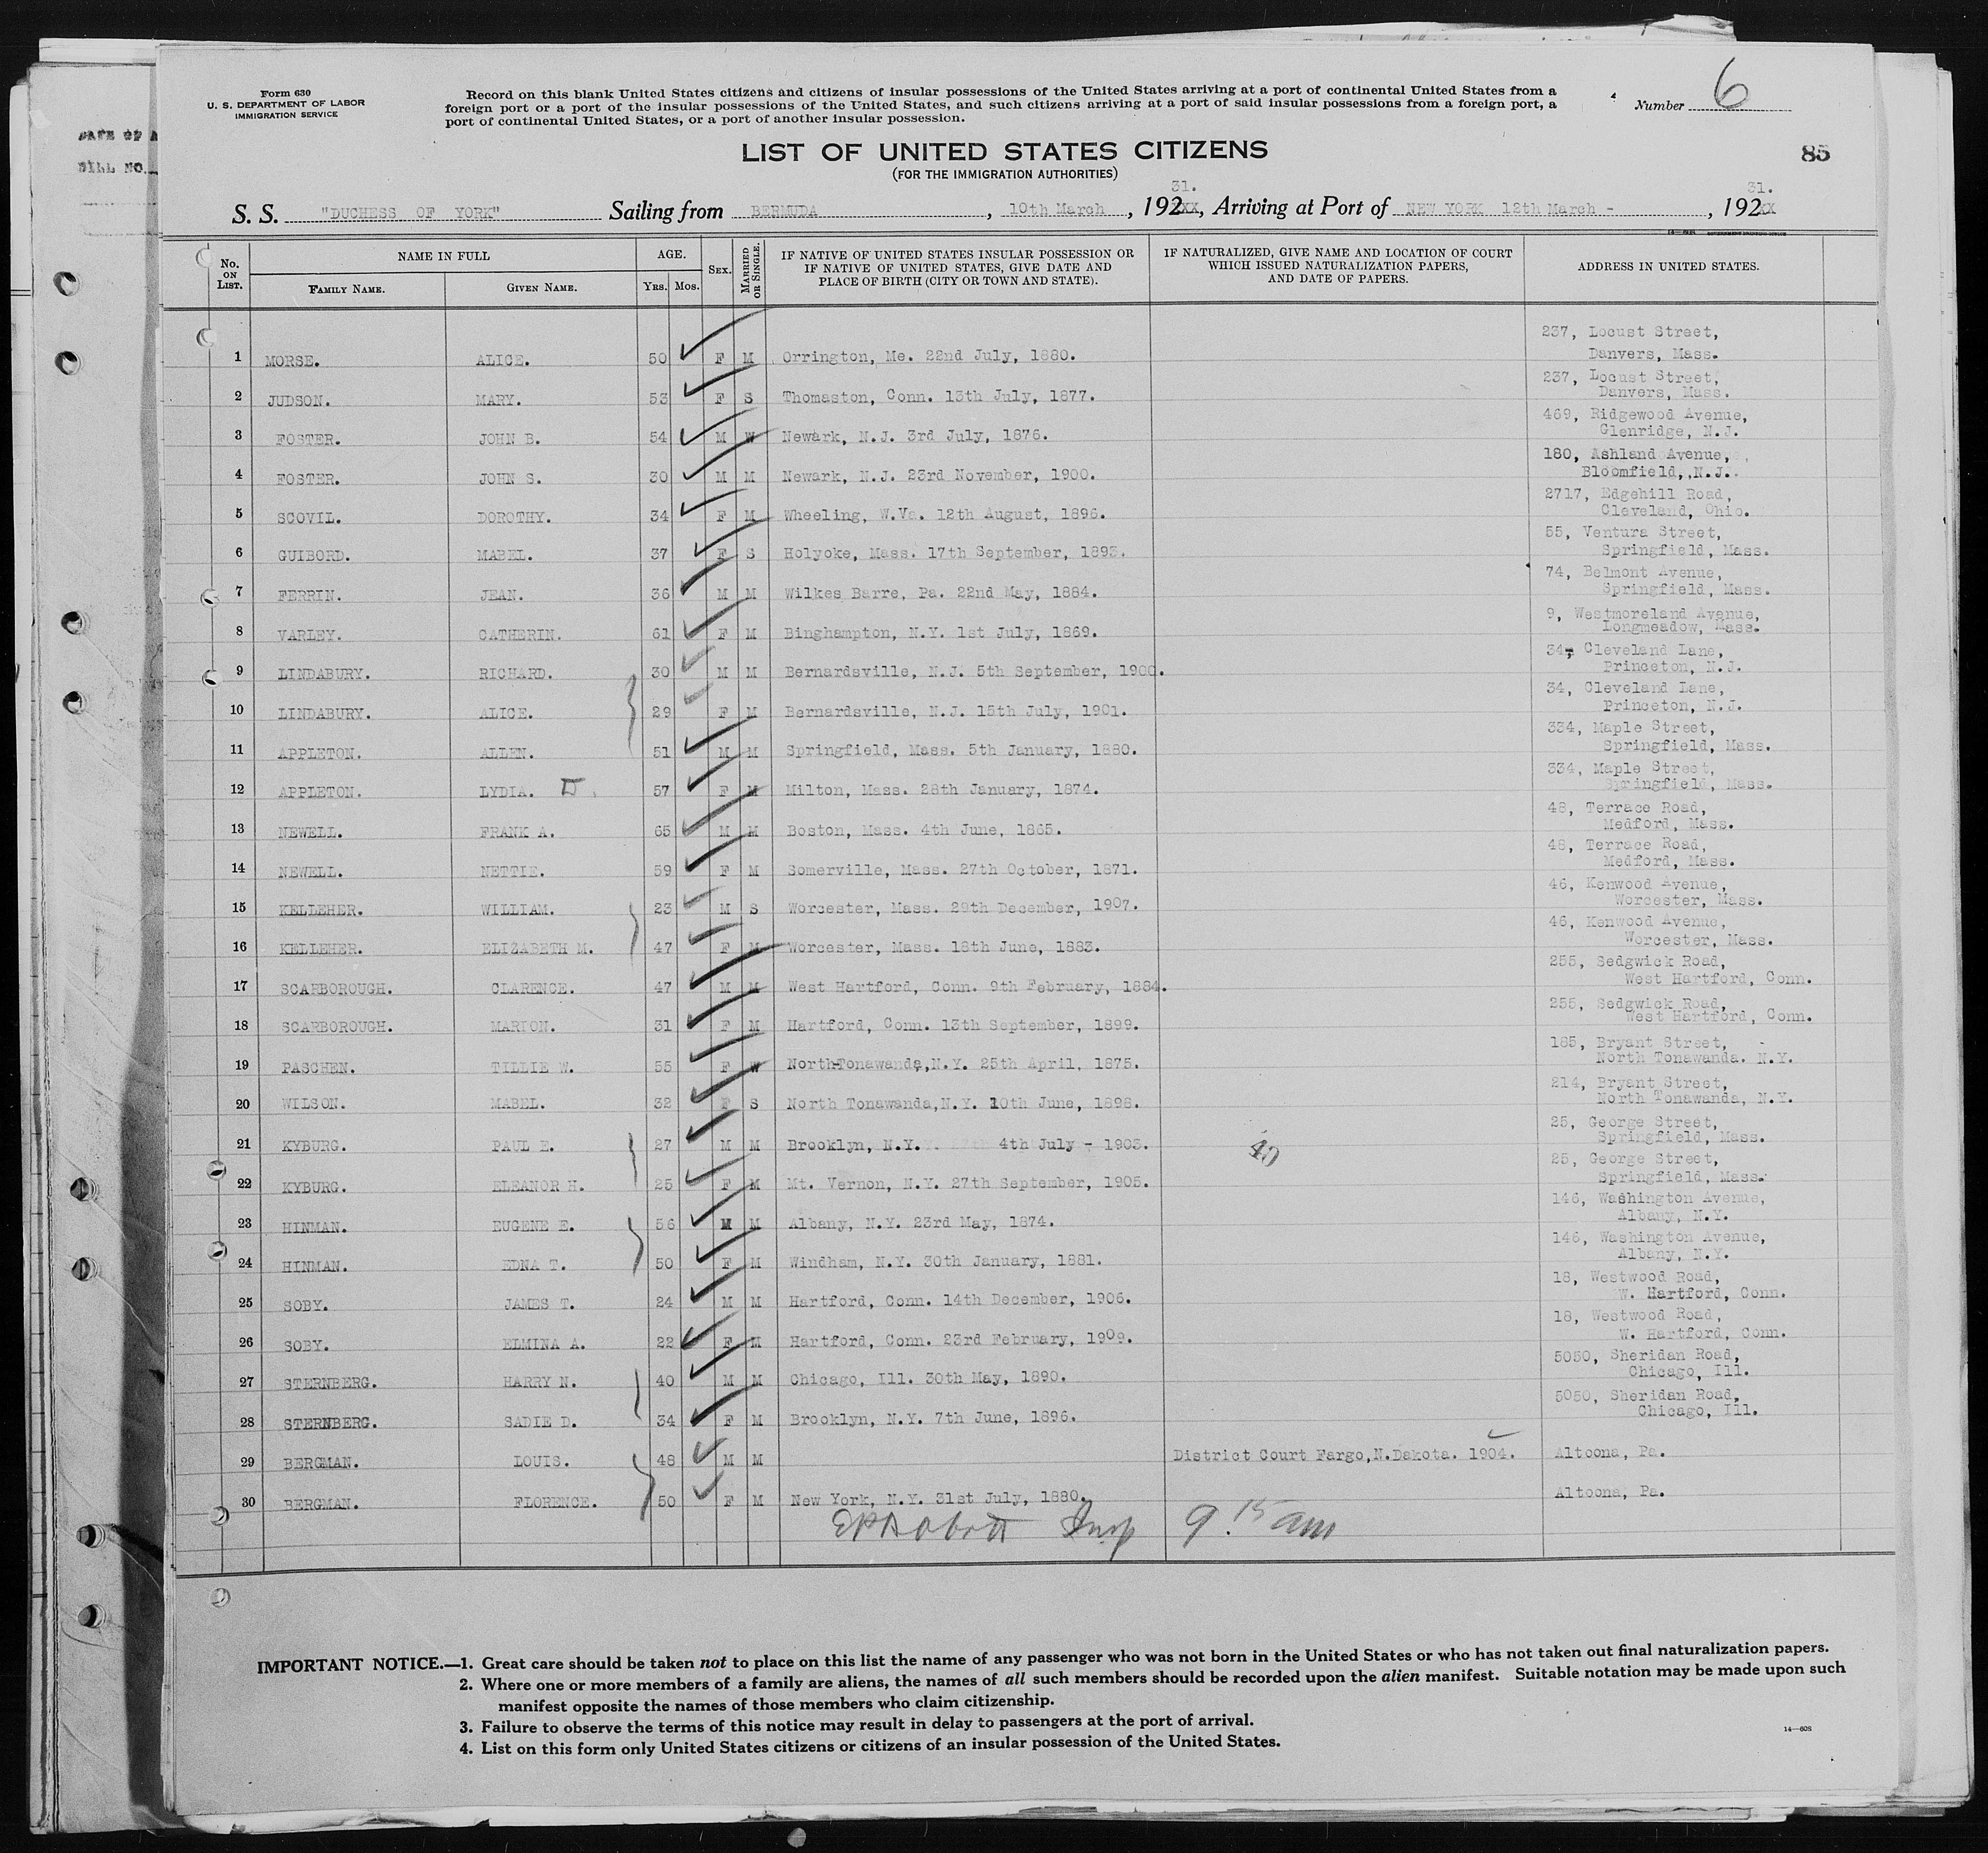 Form 630
U. S. DEPARTMENT OF LABOR
IMMIGRATION SERVICE
Record on this blank United States citizens and citizens of insular possessions of the United States arriving at a port of continental United States from a
foreign port or a port of the insular possessions of the United States, and such citizens arriving at a port of said insular possessions from a foreign port, a
port of continental United States, or a port of another insular possession.
Number 6
LIST OF UNITED STATES CITIZENS
(FOR THE IMMIGRATION AUTHORITIES)
85
S. S. "DUCHESS OF YORK" Sailing from BERMUDA, 10th March, 192xx 31., Arriving at Port of NEW YORK 12th March -, 192xx 31.
No. ON LIST. NAME IN FULL FAMILY NAME. GIVEN NAME. AGE. YRS. MOS. SEX. MARRIED OR SINGLE. IF NATIVE OF UNITED STATES INSULAR POSSESSION OR IF NATIVE OF UNITED STATES, GIVE DATE AND PLACE OF BIRTH (CITY OR TOWN AND STATE). IF NATURALIZED, GIVE NAME AND LOCATION OF COURT WHICH ISSUED NATURALIZATION PAPERS, AND DATE OF PAPERS. ADDRESS IN UNITED STATES.
1 MORSE. ALICE. 50 F M Orrington, Me. 22nd July, 1880. 237, Locust Street, Danvers, Mass.
2 JUDSON. MARY. 53 F S Thomaston, Conn. 13th July, 1877. 237, Locust Street, Danvers, Mass.
3 FOSTER. JOHN B. 54 M W Newark, N.J. 3rd July, 1876. 469, Ridgewood Avenue, Glenridge, N.J.
4 FOSTER. JOHN S. 30 M M Newark, N.J. 23rd November, 1900. 180, Ashland Avenue, Bloomfield, N.J.
5 SCOVIL. DOROTHY. 34 F M Wheeling, W.Va. 12th August, 1896. 2717, Edgehill Road, Cleveland, Ohio.
6 GUIBORD. MABEL. 37 F S Holyoke, Mass. 17th September, 1893. 55, Ventura Street, Springfield, Mass.
7 FERRIN. JEAN. 36 M M Wilkes Barre, Pa. 22nd May, 1884. 74, Belmont Avenue, Springfield, Mass.
8 VARLEY. CATHERIN. 61 F M Binghampton, N.Y. 1st July, 1869. 9, Westmoreland Avenue, Longmeadow, Mass.
9 LINDABURY. RICHARD. 30 M M Bernardsville, N.J. 5th September, 1900. 34, Cleveland Lane, Princeton, N.J.
10 LINDABURY. ALICE. 29 F M Bernardsville, N.J. 15th July, 1901. 34, Cleveland Lane, Princeton, N.J.
11 APPLETON. ALLEN. 51 M M Springfield, Mass. 5th January, 1880. 334, Maple Street, Springfield, Mass.
12 APPLETON. LYDIA. 57 F M Milton, Mass. 28th January, 1874. 334, Maple Street, Springfield, Mass.
13 NEWELL. FRANK A. 65 M M Boston, Mass. 4th June, 1865. 48, Terrace Road, Medford, Mass.
14 NEWELL. NETTIE. 59 F M Somerville, Mass. 27th October, 1871. 48, Terrace Road, Medford, Mass.
15 KELLEHER. WILLIAM. 23 M S Worcester, Mass. 29th December, 1907. 46, Kenwood Avenue, Worcester, Mass.
16 KELLEHER. ELIZABETH M. 47 F M Worcester, Mass. 18th June, 1883. 46, Kenwood Avenue, Worcester, Mass.
17 SCARBOROUGH. CLARENCE. 47 M M West Hartford, Conn. 9th February, 1884. 255, Sedgwick Road, West Hartford, Conn.
18 SCARBOROUGH. MARION. 31 F M Hartford, Conn. 13th September, 1899. 255, Sedgwick Road, West Hartford, Conn.
19 PASCHEN. TILLIE W. 55 F W North Tonawanda, N.Y. 25th April, 1875. 185, Bryant Street, North Tonawanda. N.Y.
20 WILSON. MABEL. 32 F S North Tonawanda, N.Y. 10th June, 1898. 214, Bryant Street, North Tonawanda, N.Y.
21 KYBURG. PAUL E. 27 M M Brooklyn, N.Y. 4th July - 1903. 25, George Street, Springfield, Mass.
22 KYBURG. ELEANOR H. 25 F M Mt. Vernon, N.Y. 27th September, 1905. 25, George Street, Springfield, Mass.
23 HINMAN. EUGENE E. 56 M M Albany, N.Y. 23rd May, 1874. 146, Washington Avenue, Albany, N.Y.
24 HINMAN. EDNA T. 50 F M Windham, N.Y. 30th January, 1881. 146, Washington Avenue, Albany, N.Y.
25 SOBY. JAMES T. 24 M M Hartford, Conn. 14th December, 1906. 18, Westwood Road, W. Hartford, Conn.
26 SOBY. ELMINA A. 22 F M Hartford, Conn. 23rd February, 1909. 18, Westwood Road, W. Hartford, Conn.
27 STERNBERG. HARRY N. 40 M M Chicago, Ill. 30th May, 1890. 5050, Sheridan Road, Chicago, Ill.
28 STERNBERG. SADIE D. 34 F M Brooklyn, N.Y. 7th June, 1896. 5050, Sheridan Road, Chicago, Ill.
29 BERGMAN. LOUIS. 48 M M District Court Fargo, N.Dakota. 1904. Altoona, Pa.
30 BERGMAN. FLORENCE. 50 F M New York, N.Y. 31st July, 1880. Altoona, Pa.
Insp 9.15 am
IMPORTANT NOTICE.—1. Great care should be taken not to place on this list the name of any passenger who was not born in the United States or who has not taken out final naturalization papers.
2. Where one or more members of a family are aliens, the names of all such members should be recorded upon the alien manifest. Suitable notation may be made upon such
manifest opposite the names of those members who claim citizenship.
3. Failure to observe the terms of this notice may result in delay to passengers at the port of arrival.
4. List on this form only United States citizens or citizens of an insular possession of the United States.